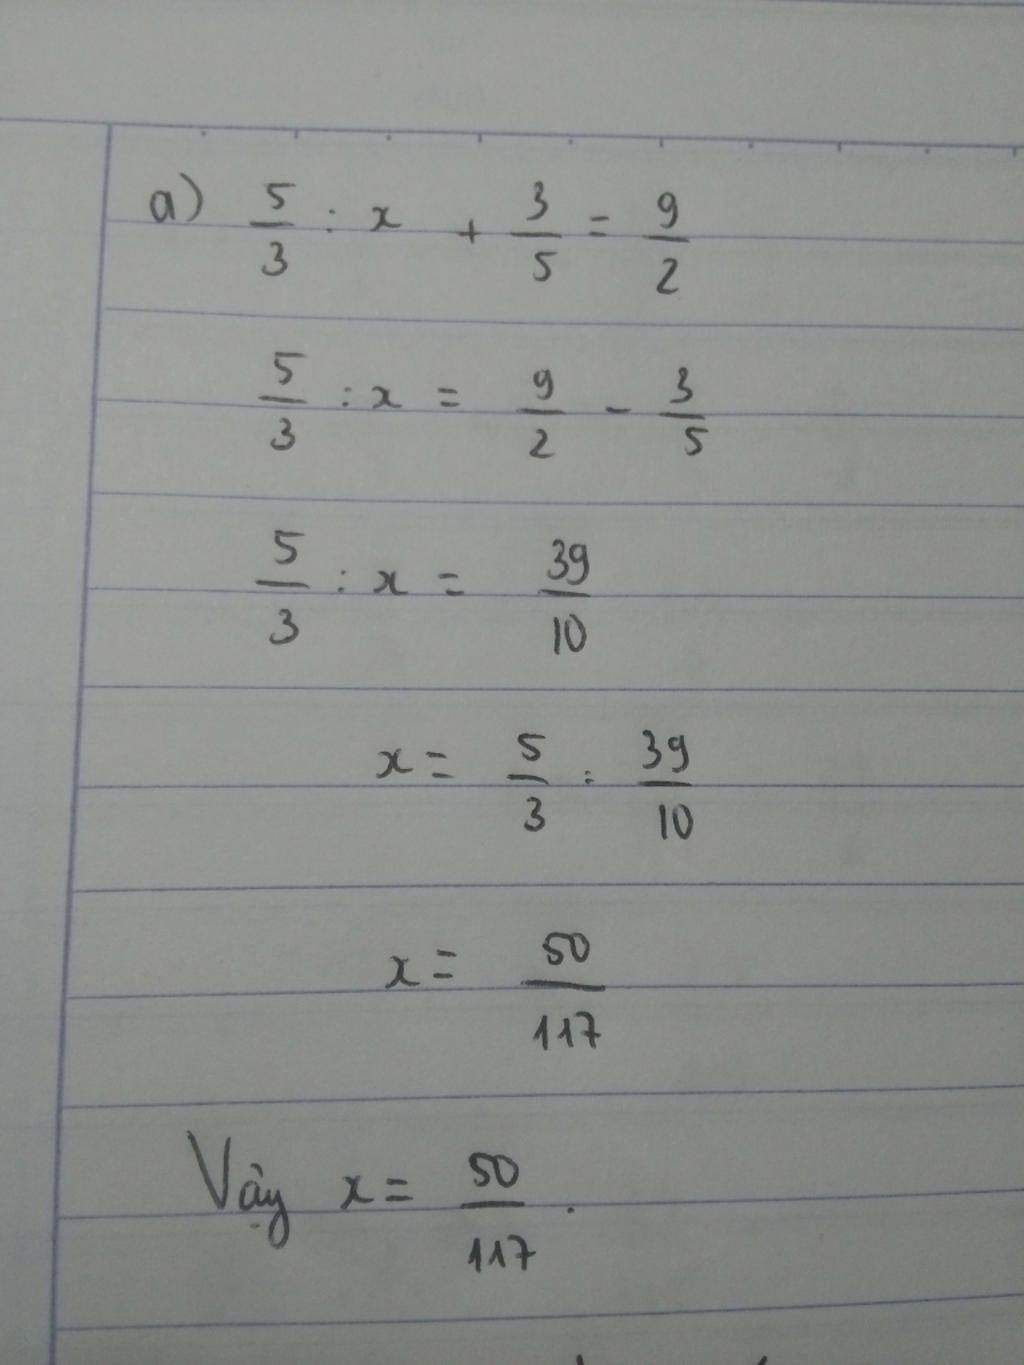 a) 5/3 : x + 3/5 = 9/2
5/3 : x = 9/2 - 3/5
5/3 : x = 39/10
x = 5/3 : 39/10
x = 50/117
Vậy x = 50/117.